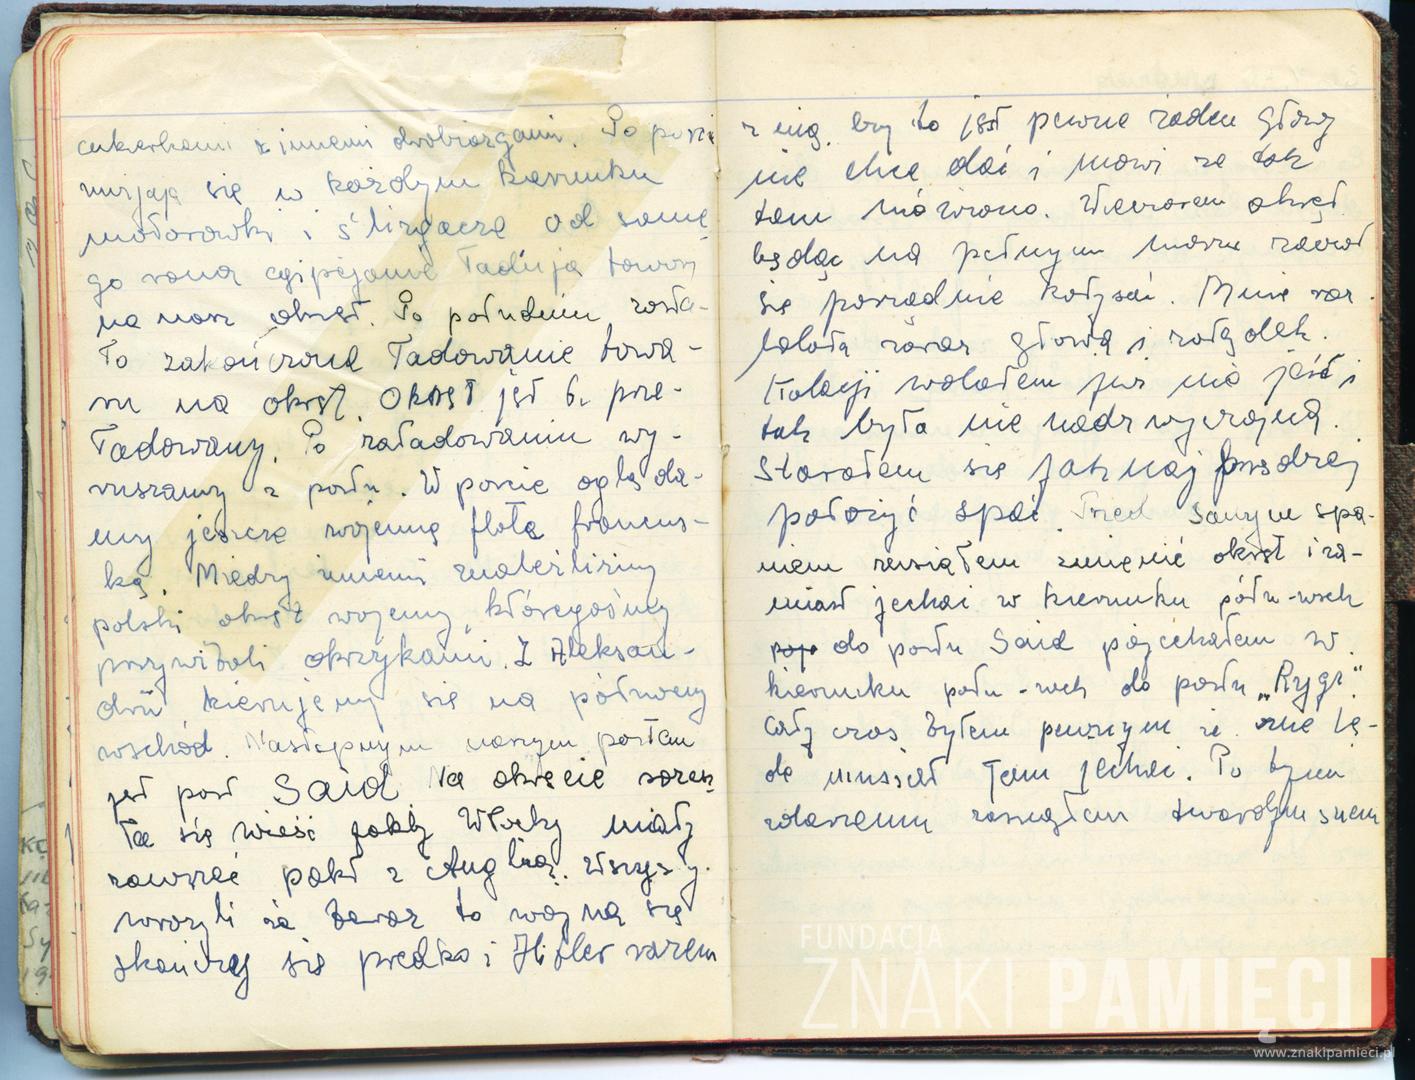 cukierkami z innemi drobiazgami. Po porcie
mijają się w każdym kierunku
motorówki i ślizgacze od same
go rana egipcjanie Tadują towary
na nasz okręt. Po południu zosta-
ło zakończone Tadowanie towa-
ru na okręt. Okręt jest b. prze-
Tadowany. Po załadowaniu wy-
ruszamy z portu. W porcie ogląda-
my jeszcze wojenną flotę francus-
ką. Między innemi znaleźlismy
polski okręt wojenny, któregośmy
przywitali okrzykami. Z Aleksan-
drii kierujemy się na północny
wschód. Następnym naszym portem
jest port Said. Na okręcie rozesz
ła się wieść jakby Włochy miały
zawrzeć pakt z Anglią. Wszyscy
woroyli że teraz to wojna się
skończy się prędko i Hitler razem
z nią. Czy to jest pewne żaden głowy
nie chce dać i mówi że tak
tam mówiono. Wieczorem okręt
będąc na pełnym morzu zaczął
się porządnie kołysać. Mnie roz
bolała zaraz głowa i żołądek.
Kolacji wolałem już nie jeść i
tak była nie nadzwyczajną.
Starałem się jak najprędzej
położyć spać. Przed samym spa-
niem musiałem zmienić okręt i za-
miast jechać w kierunku półn-wsch
do portu Said pojechałem w
kierunku połu-wsch do portu „Rygi".
Cały czas byłem pewnym że nie bę-
dę musiał tam jechać. Po tym
zdarzeniu zasnąłem twardym snem
FUNDACJA
ZNAKI PAMIĘCI
www.znakipamieci.pl